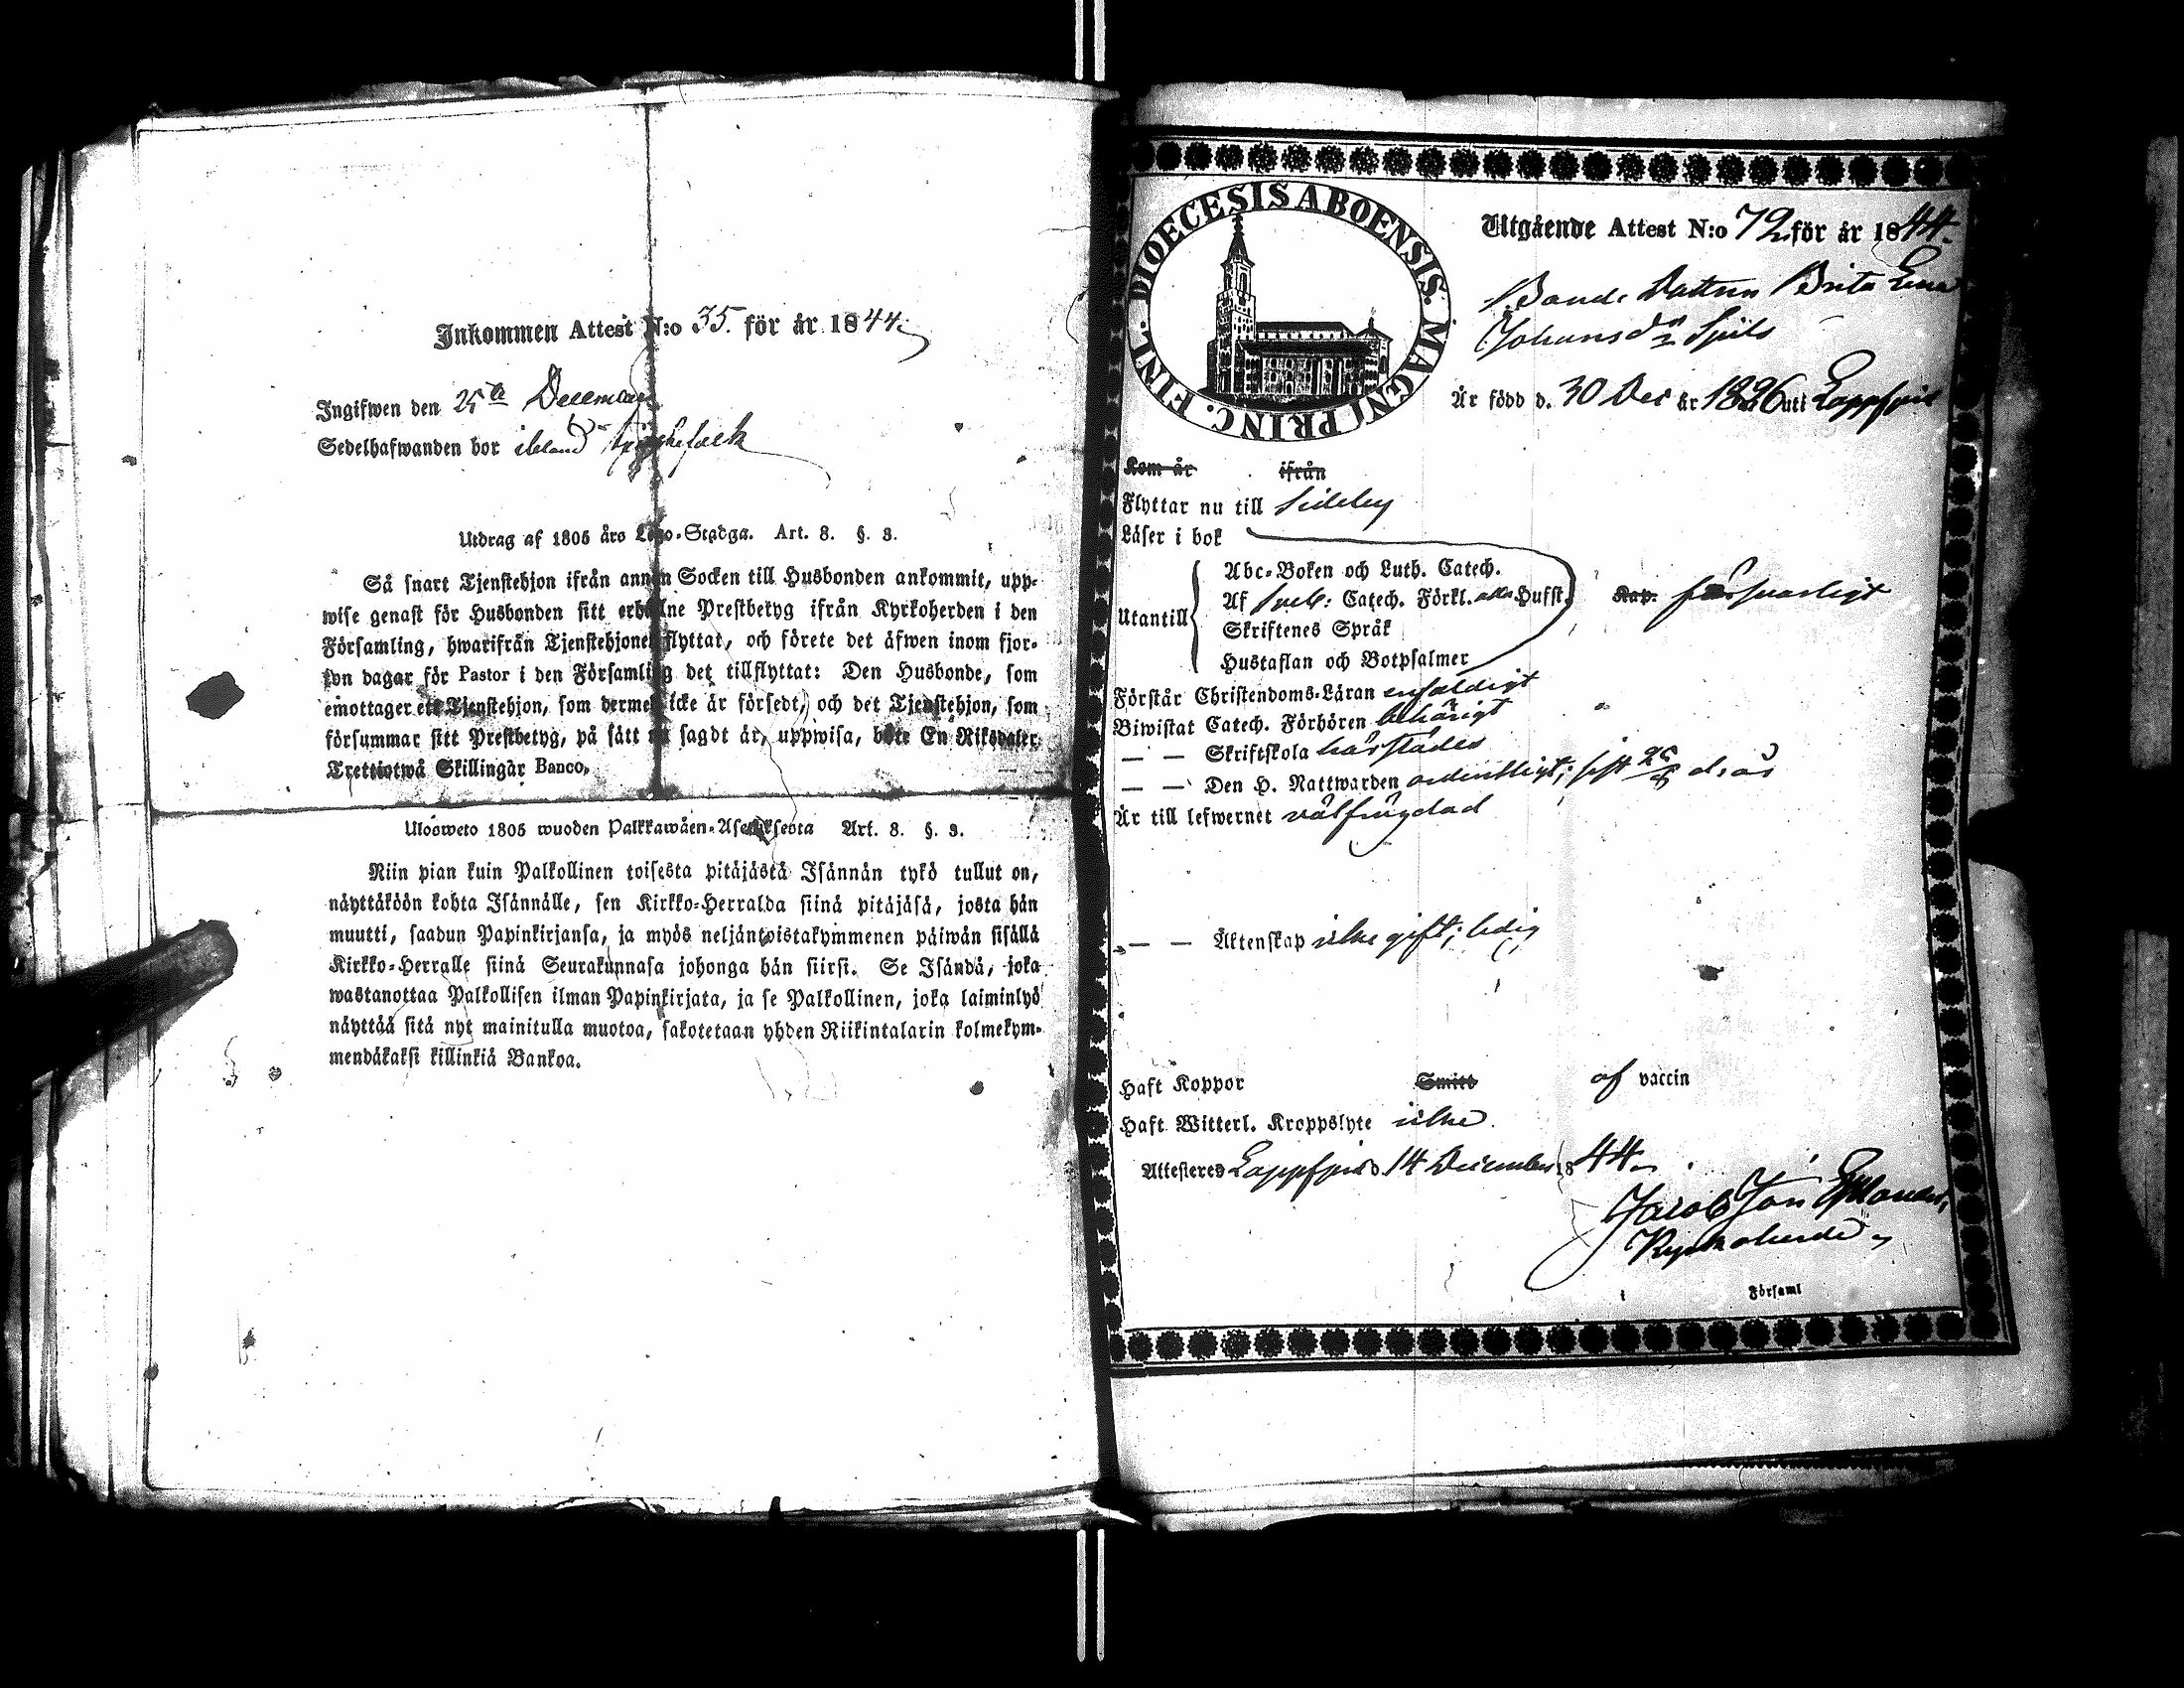 Inkommen Attest N:o 35. för år 1844.
Ingifwen den 25te December
Sedelhafwanden bor ibland
Utdrag af 1805 års Lego-Stadga. Art. 8. §. 3.
Så snart Tjenstehjon ifrån annan Socken till Husbonden ankommit, upp-
wise genast för Husbonden sitt erhållne Prestbetyg ifrån Kyrkoherden i den
Församling, hwarifrån Tjenstehjonet flyttat, och förete det äfwen inom fjor-
ton dagar för Pastor i den Församling det tillflyttat: Den Husbonde, som
emottager ett Tjenstehjon, som dermed icke är försedt, och det Tjenstehjon, som
försummar sitt Prestbetyg, på sätt nu sagdt är, uppwisa, böte En Riksdaler
Trettiotwå Skillingar Banco.
Ulosweto 1805 wuoden Palkkawäen-Asetuksesta Art. 8. §. 3.
Niin pian kuin Palkollinen toisesta pitäjästä Isännän tykö tullut on,
näyttäköön kohta Isännälle, sen Kirkko-Herralda siinä pitäjäsä, josta hän
muutti, saadun Papinkirjansa, ja myös neljäntoistakymmenen päiwän sisällä
Kirkko-Herralle siinä Seurakunnasa johonga hän siirsi. Se Isändä, joka
wastanottaa Palkollisen ilman Papinkirjata, ja se Palkollinen, joka laiminlyö
näyttää sitä nyt mainitulla muotoa, sakotetaan yhden Riikintalarin kolmekym-
mendäkaksi killinkiä Bankoa.
DIOECESIS ABOENSIS. MAGNI PRINC. FINL.
Utgående Attest N:o 72 för år 1844.
Bonde Dottren Brita Lena
Johansdr Spils
Är född d. 30 Dec år 1826 uti Lappfjärd
Kom år ifrån
Flyttar nu till Sideby
Läser i bok
Utantill
Abc-Boken och Luth. Catech.
Af Sveb: Catech. Förkl. Husst.
Skriftenes Språk
Hustaflan och Botpsalmer
Kap. försvarligt
Förstår Christendoms-Läran enfaldigt
Biwistat Catech. Förhören behörigt
— — Skriftskola härstädes
— — Den H. Nattwarden ordentligt; sist d: år
Är till lefwernet välfrägdad
— — Äktenskap icke gift; ledig
Haft Koppor Smitt af vaccin
Haft Witterl. Kroppslyte icke
Attesteres Lappfjärd d. 14 December 1844.
Jacob Jon
Kyrkoherde
i Församl